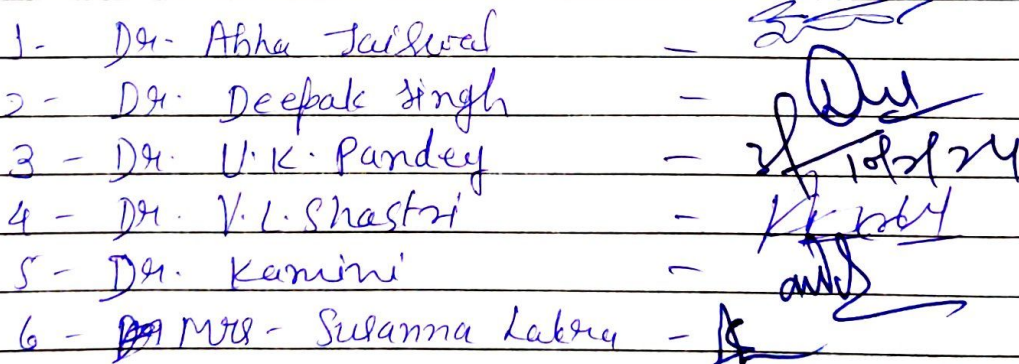 1- Dr- Abha Jaiswal -
2- Dr. Deepak Singh -
3 - Dr. U.K. Pandey - 10/2/24
4 - Dr. V.L. Shastri -
5 - Dr. Kamini -
6 - Mrs - Susanna Lakra -